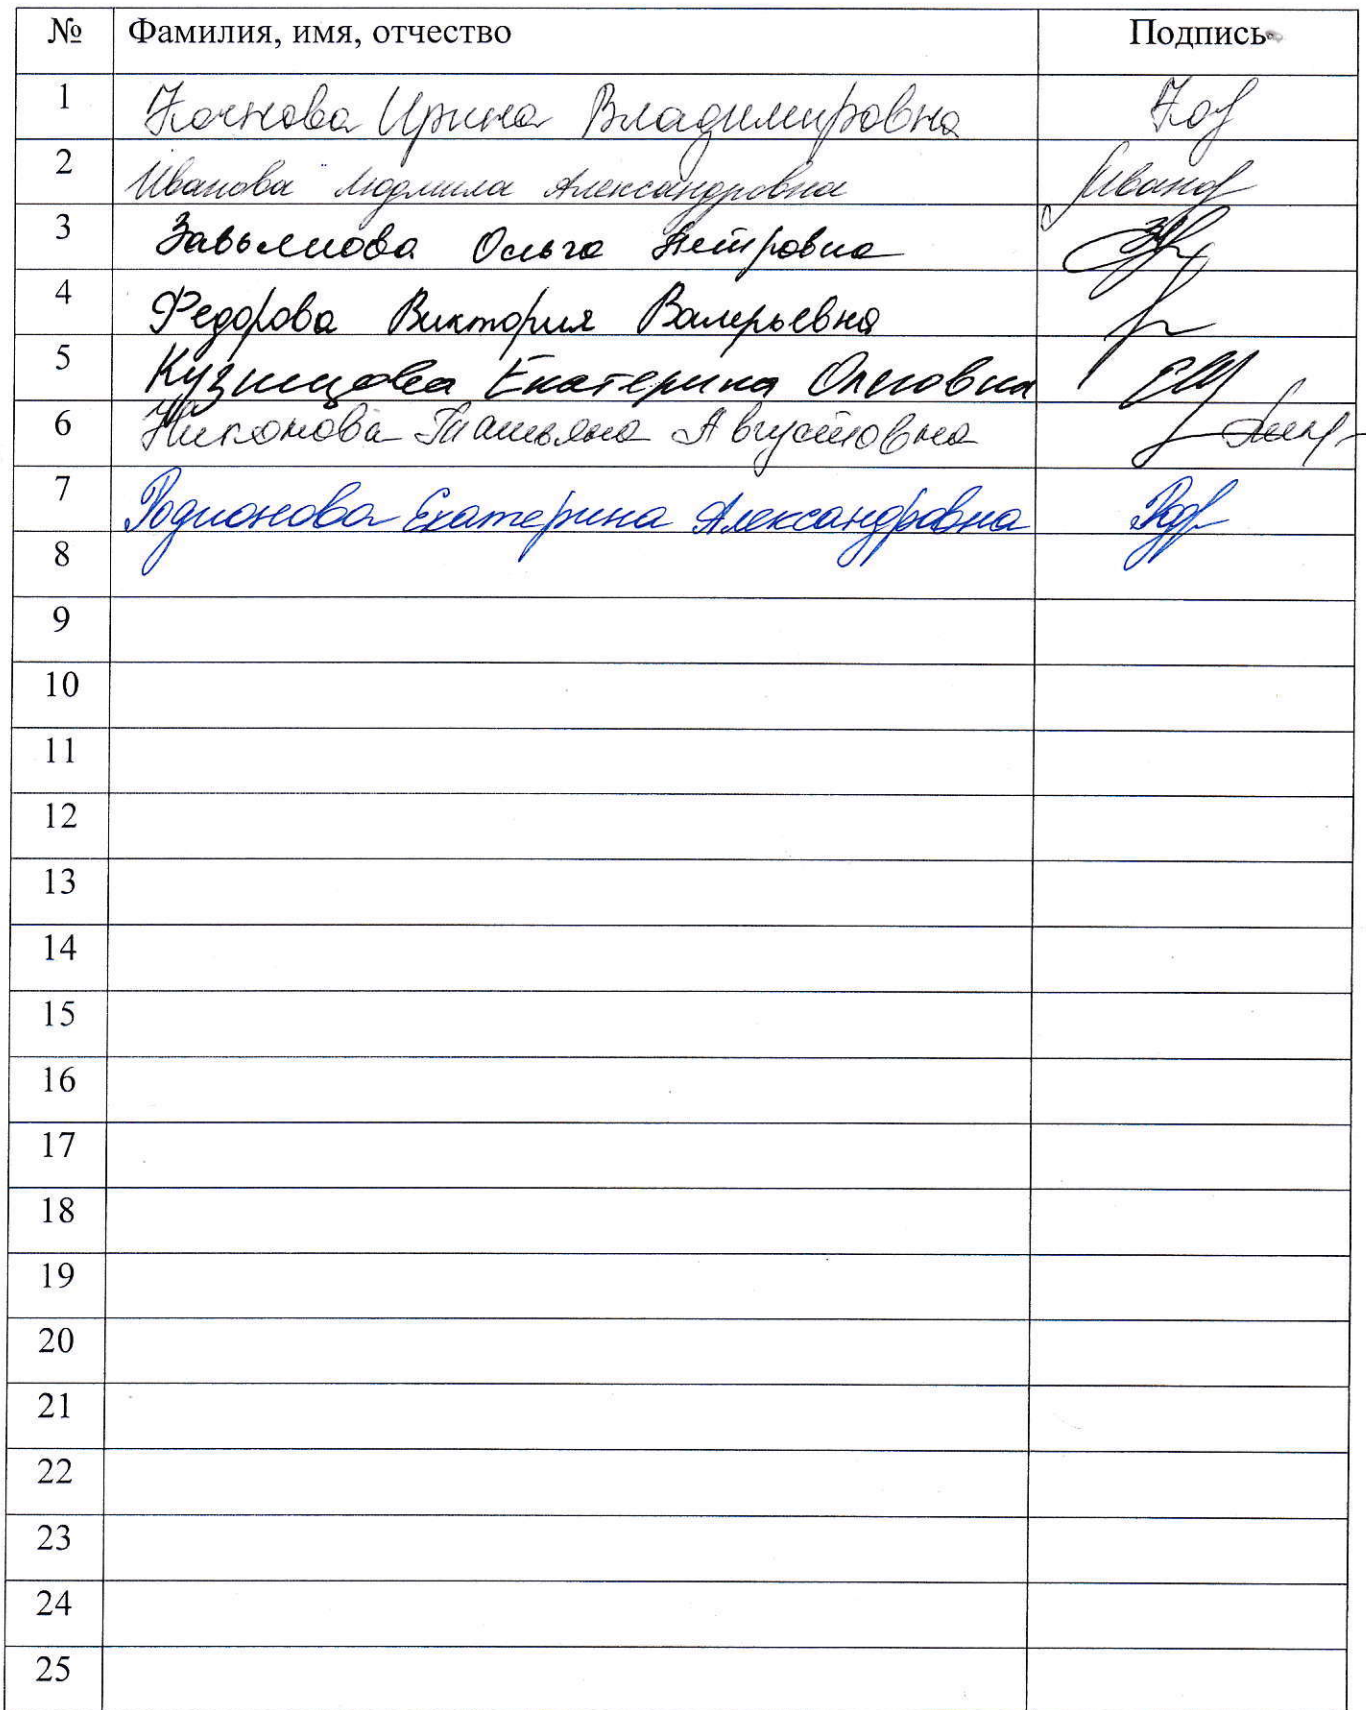 № Фамилия, имя, отчество Подпись
1 Ирина Владимировна
2 Иванова Людмила Александровна Иванов
3 Завьялова Ольга Петровна
4 Федорова Виктория Валерьевна
5 Кузнецова Екатерина Олеговна
6 Никонова Татьяна Августовна
7 Родионова Екатерина Александровна
8
9
10
11
12
13
14
15
16
17
18
19
20
21
22
23
24
25